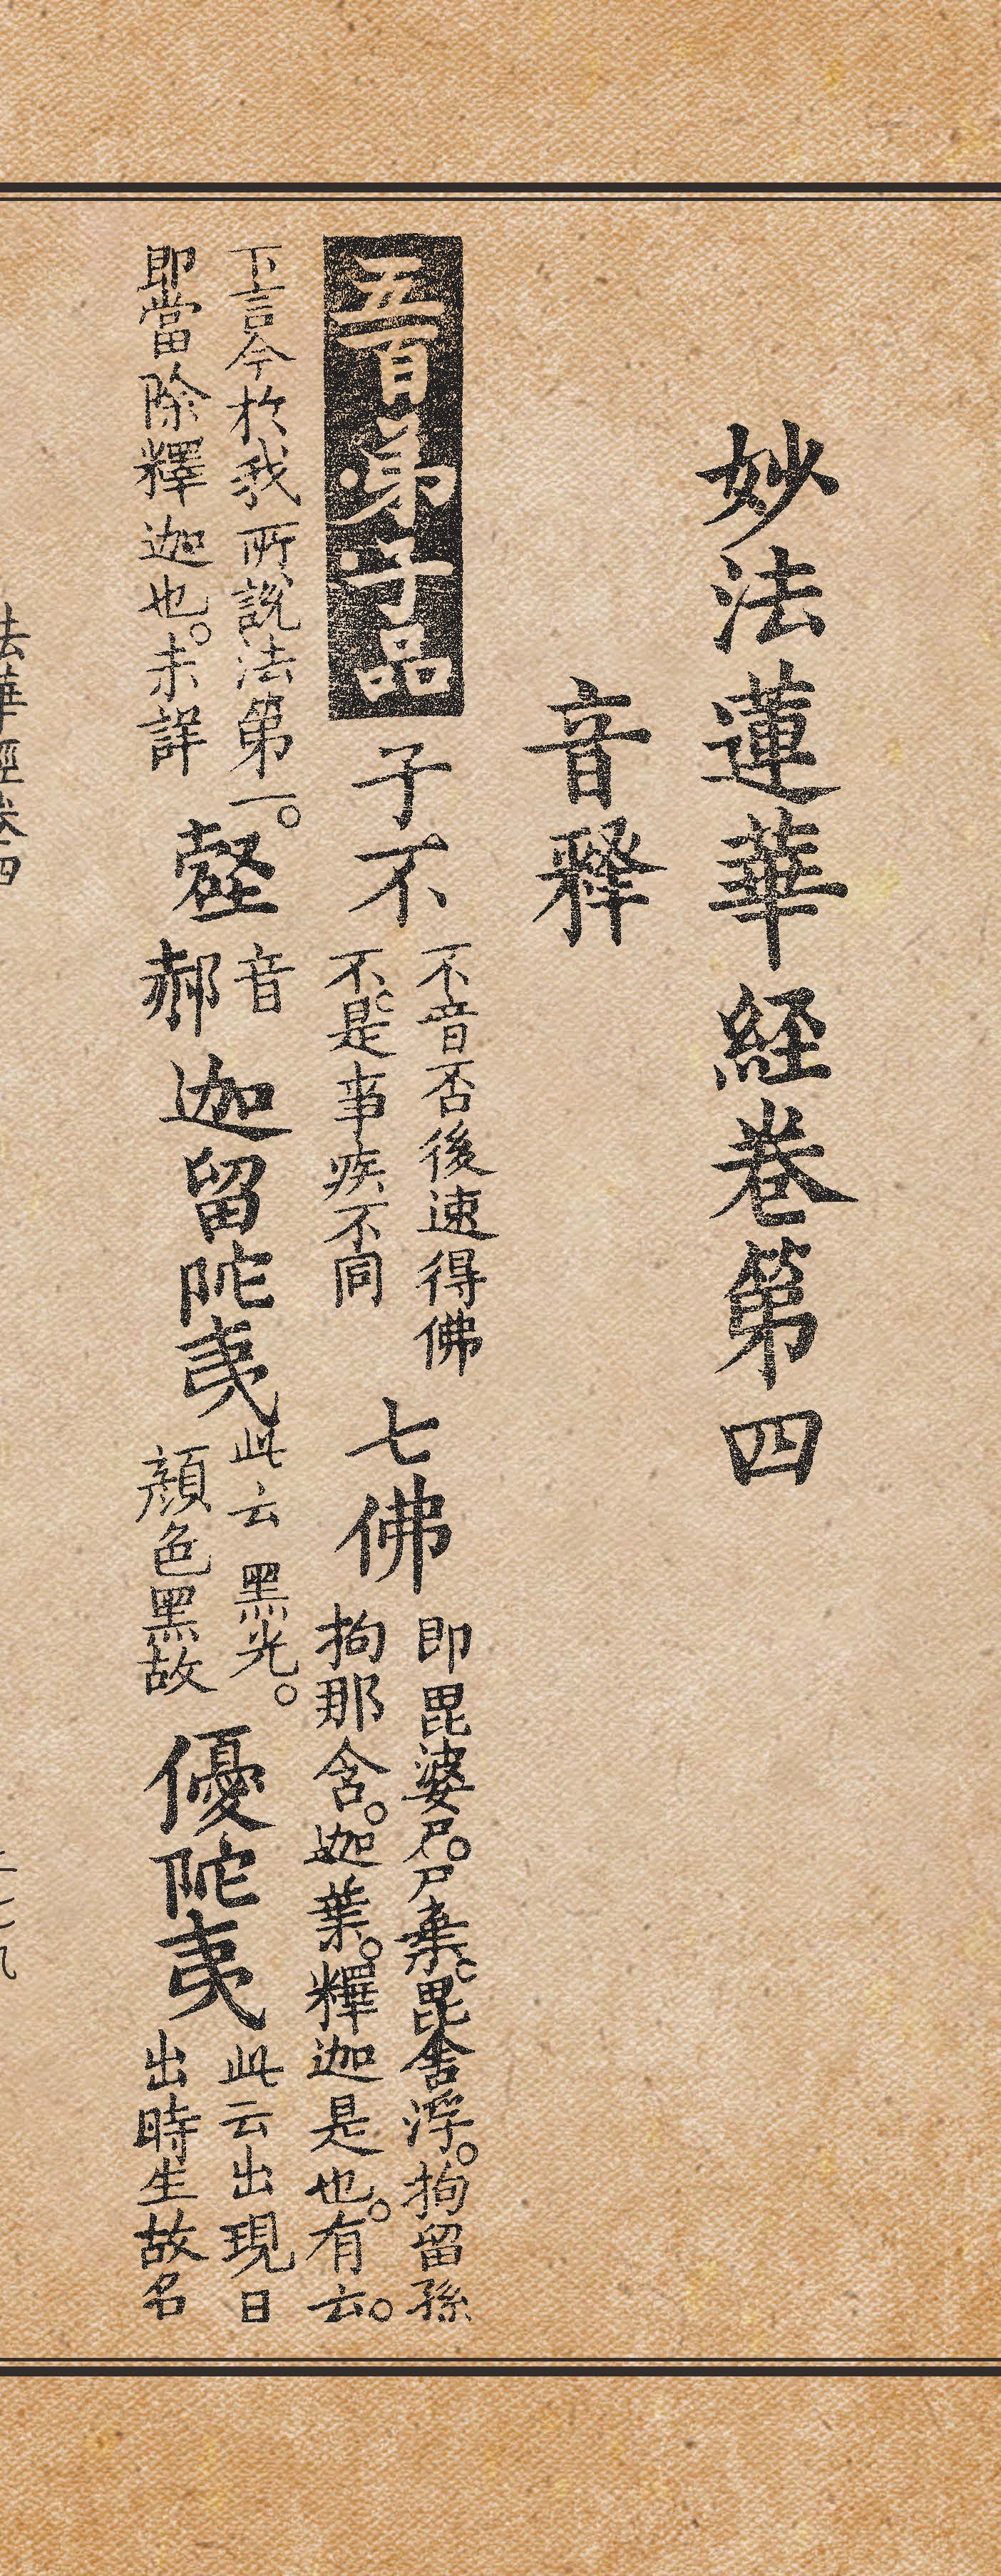 妙法蓮華經卷第四
音釋
五百弟子品
子不
不音否後速得佛
不是事疾不同
七佛
即毘婆尸。尸棄。毘舍浮。拘留孫
拘那含。迦葉。釋迦是也。有云。
下言今於我所說法第一。
即當除釋迦也。未詳
壑
音
郝
迦留陀夷
此云黑光。
顏色黑故
優陀夷
此云出現日
出時生故名
法華經卷四